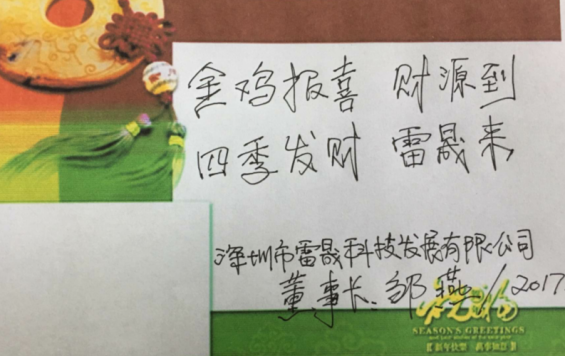 金鸡报喜 财源到
四季发财 雷晟来
深圳市雷晟科技发展有限公司
董事长:邹燕 1/2017
祝福
SEASON'S GREETINGS
【新年快樂 萬事如意】